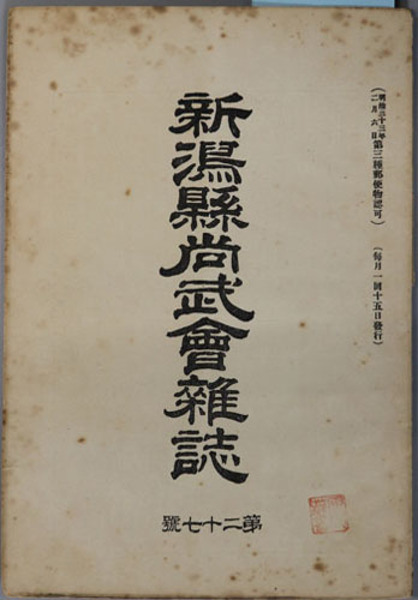 (明治三十三年二月六日第三種郵便物認可) (每月一回十五日發行)
新潟縣尚武會雜誌
第二十七號